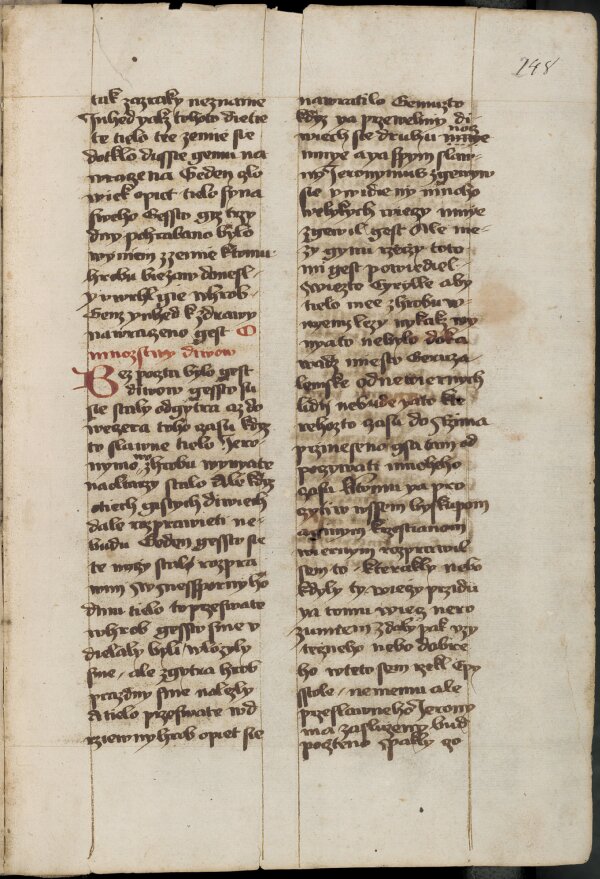 248
tak zazraky nezname
Inhed yakz tohoto dietie
te tielo tee zemie sie
dotklo diqsse gemu na
wraze na Geden qlo
wiek opiet tielo syna
sweho Gessto giz trzy
dny pohrabano bylo
wyniem zzemie ktomu
hrobu biezaw donesl
y vwrhl gie whrob
Genz ynhed k zdrawy
nawraczeno gest O
mnozstwy diwow
Bez pocztu bylo gest
diwow gessto su
sie staly odgytra az do
weczera toho czasu kdyz
to slawne tielo Jero
nymowo zhrobu wyniate
na oltarzy stalo Ale kdyz
otiech gistych diwiech
dale rozprawieti ne
budu Geden gessto sie
te noczy stal rozpra
wim Swgnessporny ho
dinu tielo to przeswate
whrob gessto sme v
dielaly byli wlozyly
sme ale zgytra hrob
prazdny sme nalezly
A tielo przeswate wd
rziewny hrob opiet sie
nawratilo Gemuzto
kdyz ya przewelmy di
wiech sie druhu noczy
mnye a ya spym slaw
ny Jeronymus zgewyw
sie vwidieny mnoho
welykych wieczy mnye
zgewil gest Ale me
zy gynu rzeczy toto
mi gest powiediel
Swiezto Cyrylle aby
tielo mee zhrobu w
nyemz lezy nykakz wy
nyato nebylo doka
wadz miesto Geruza
lemske od newiernych
lidy nebude yato kte
rehozto czasu do Rzima
przineseno gsa tam od
poczywati mnoheho
czasu ktomu ya pro
czyty wssem byskupom
a gynym krzestianom
wiernym rozprawil
sem to kterakly nebo
kdyly ty wieczy przidu
ya tomu wiecz nero
zumiem zdaly pak vzy
teczneho nebo dobre
ho wteto sem rzekl Epy
sstole nemenu ale
przeslawneho Jerony
ma zasluzeny bud
poczteno Paklly czo